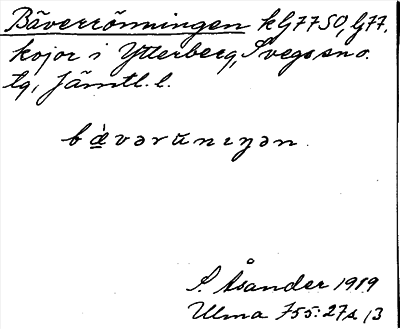 Bäverrönningen k G77SO, G77.
kojor i Ytterberg, Svegs sn o.
tg, Jämtl. l.
bævərɯnɩŋən.
S. Åsander 1919
Ulma 755:27A, 13